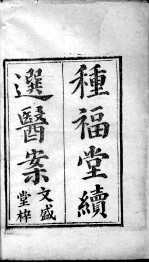 種福堂續
選醫案
文盛
堂梓